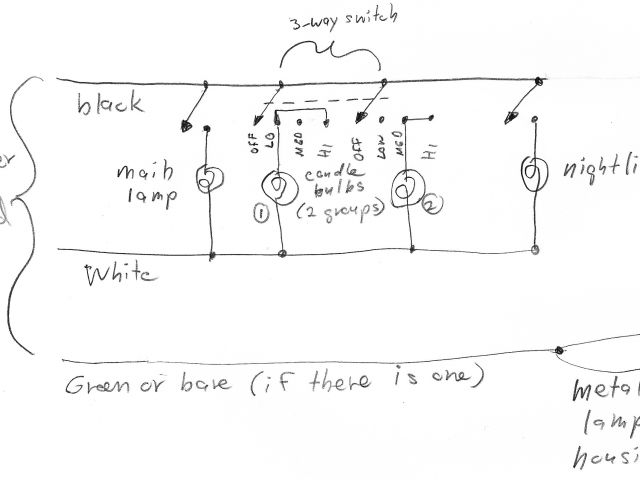 3-way switch
black
OFF
LO
MED
HI
OFF
LOW
MED
HI
main
lamp
candle
bulbs
(2 groups)
1
2
White
Green or bare (if there is one)